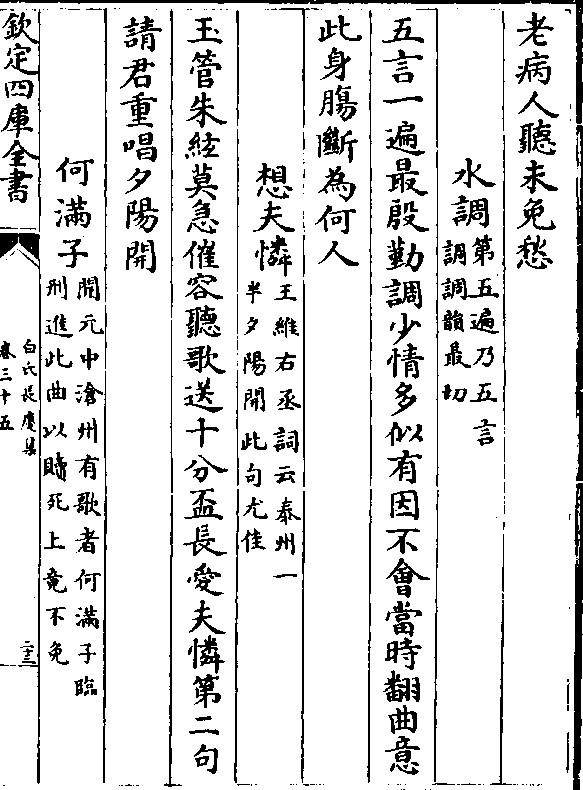 老病人聽未免愁
水調第五遍乃五言
調調韻最切
五言一遍最殷勤調少情多似有因不會當時翻曲意
此身腸斷為何人
想夫憐王維右丞詞云秦州一
半夕陽開此句尤佳
玉管朱絃莫急催容聽歌送十分盃長愛夫憐第二句
請君重唱夕陽開
何滿子開元中滄州有歌者何滿子臨
刑進此曲以贖死上竟不免
欽定四庫全書
白氏長慶集
卷三十五
二十三